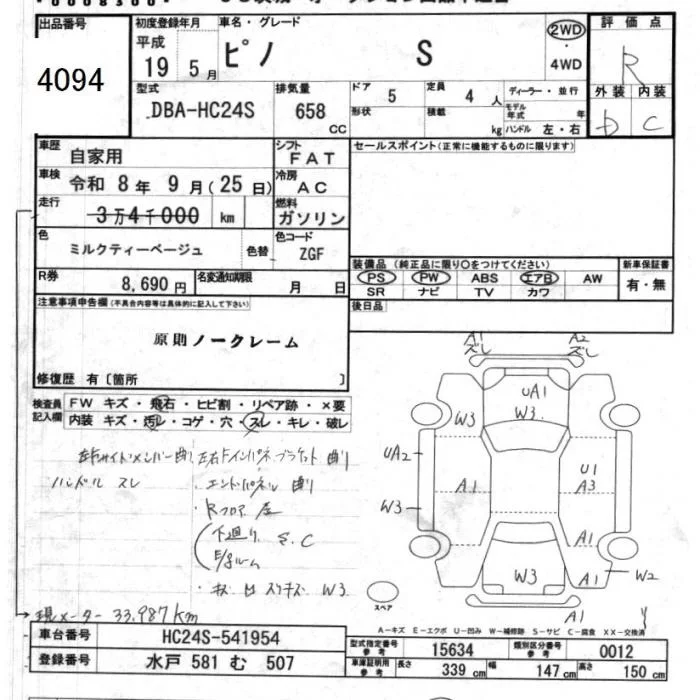 00083001
出品番号 初度登録年月 車名・グレード 評価点
平成 19 5月 ピノ S 2WD ・ 4WD R
4094
型式 排気量 ドア 5 定員 4 人 ディーラー・並行 外装 内装
DBA-HC24S 658 CC 形状 積載 kg モデル年式 年 ハンドル 左・右 D C
車歴 自家用 シフト FAT セールスポイント(正常に機能するものに限ります)
車検 令和 8年 9月(25日) 冷房 AC
走行 3万4千000 km 燃料 ガソリン
色 ミルクティーベージュ 色替 色コード ZGF
装備品(純正品に限り〇をつけてください) 新車保証書
R券 8,690円 名変通知期限 月 日 PS PW ABS エアB AW 有・無
SR ナビ TV カワ
注意事項申告欄(不具合内容等は具体的に記入して下さい) 後日品
原則ノークレーム
修復歴 有〔箇所 〕
検査員記入欄 FW キズ・飛石・ヒビ割・リペア跡・×要
内装 キズ・汚レ・コゲ・穴・スレ・キレ・破レ
左右サイドメンバー曲り 左右ドインパネブラケット曲り
ハンドル スレ ・エンドパネル 曲り
・Rフロア 歪
下廻り S.C
E/gルーム
W3
A1 ズレ A2 ズレ
UA1
W3 W3
UA2 U1
A1 A3
W3 A1
W3 A1 W2
スペア A1
現メーター 33,987km
A-キズ E-エクボ U-凹み W-補修跡 S-サビ C-腐食 XX-交換済
車台番号 HC24S-541954 型式指定番号 参考 15634 類別区分番号 参考 0012
登録番号 水戸 581 む 507 車庫証明用 参考 長さ 339cm 幅 147cm 高さ 150cm